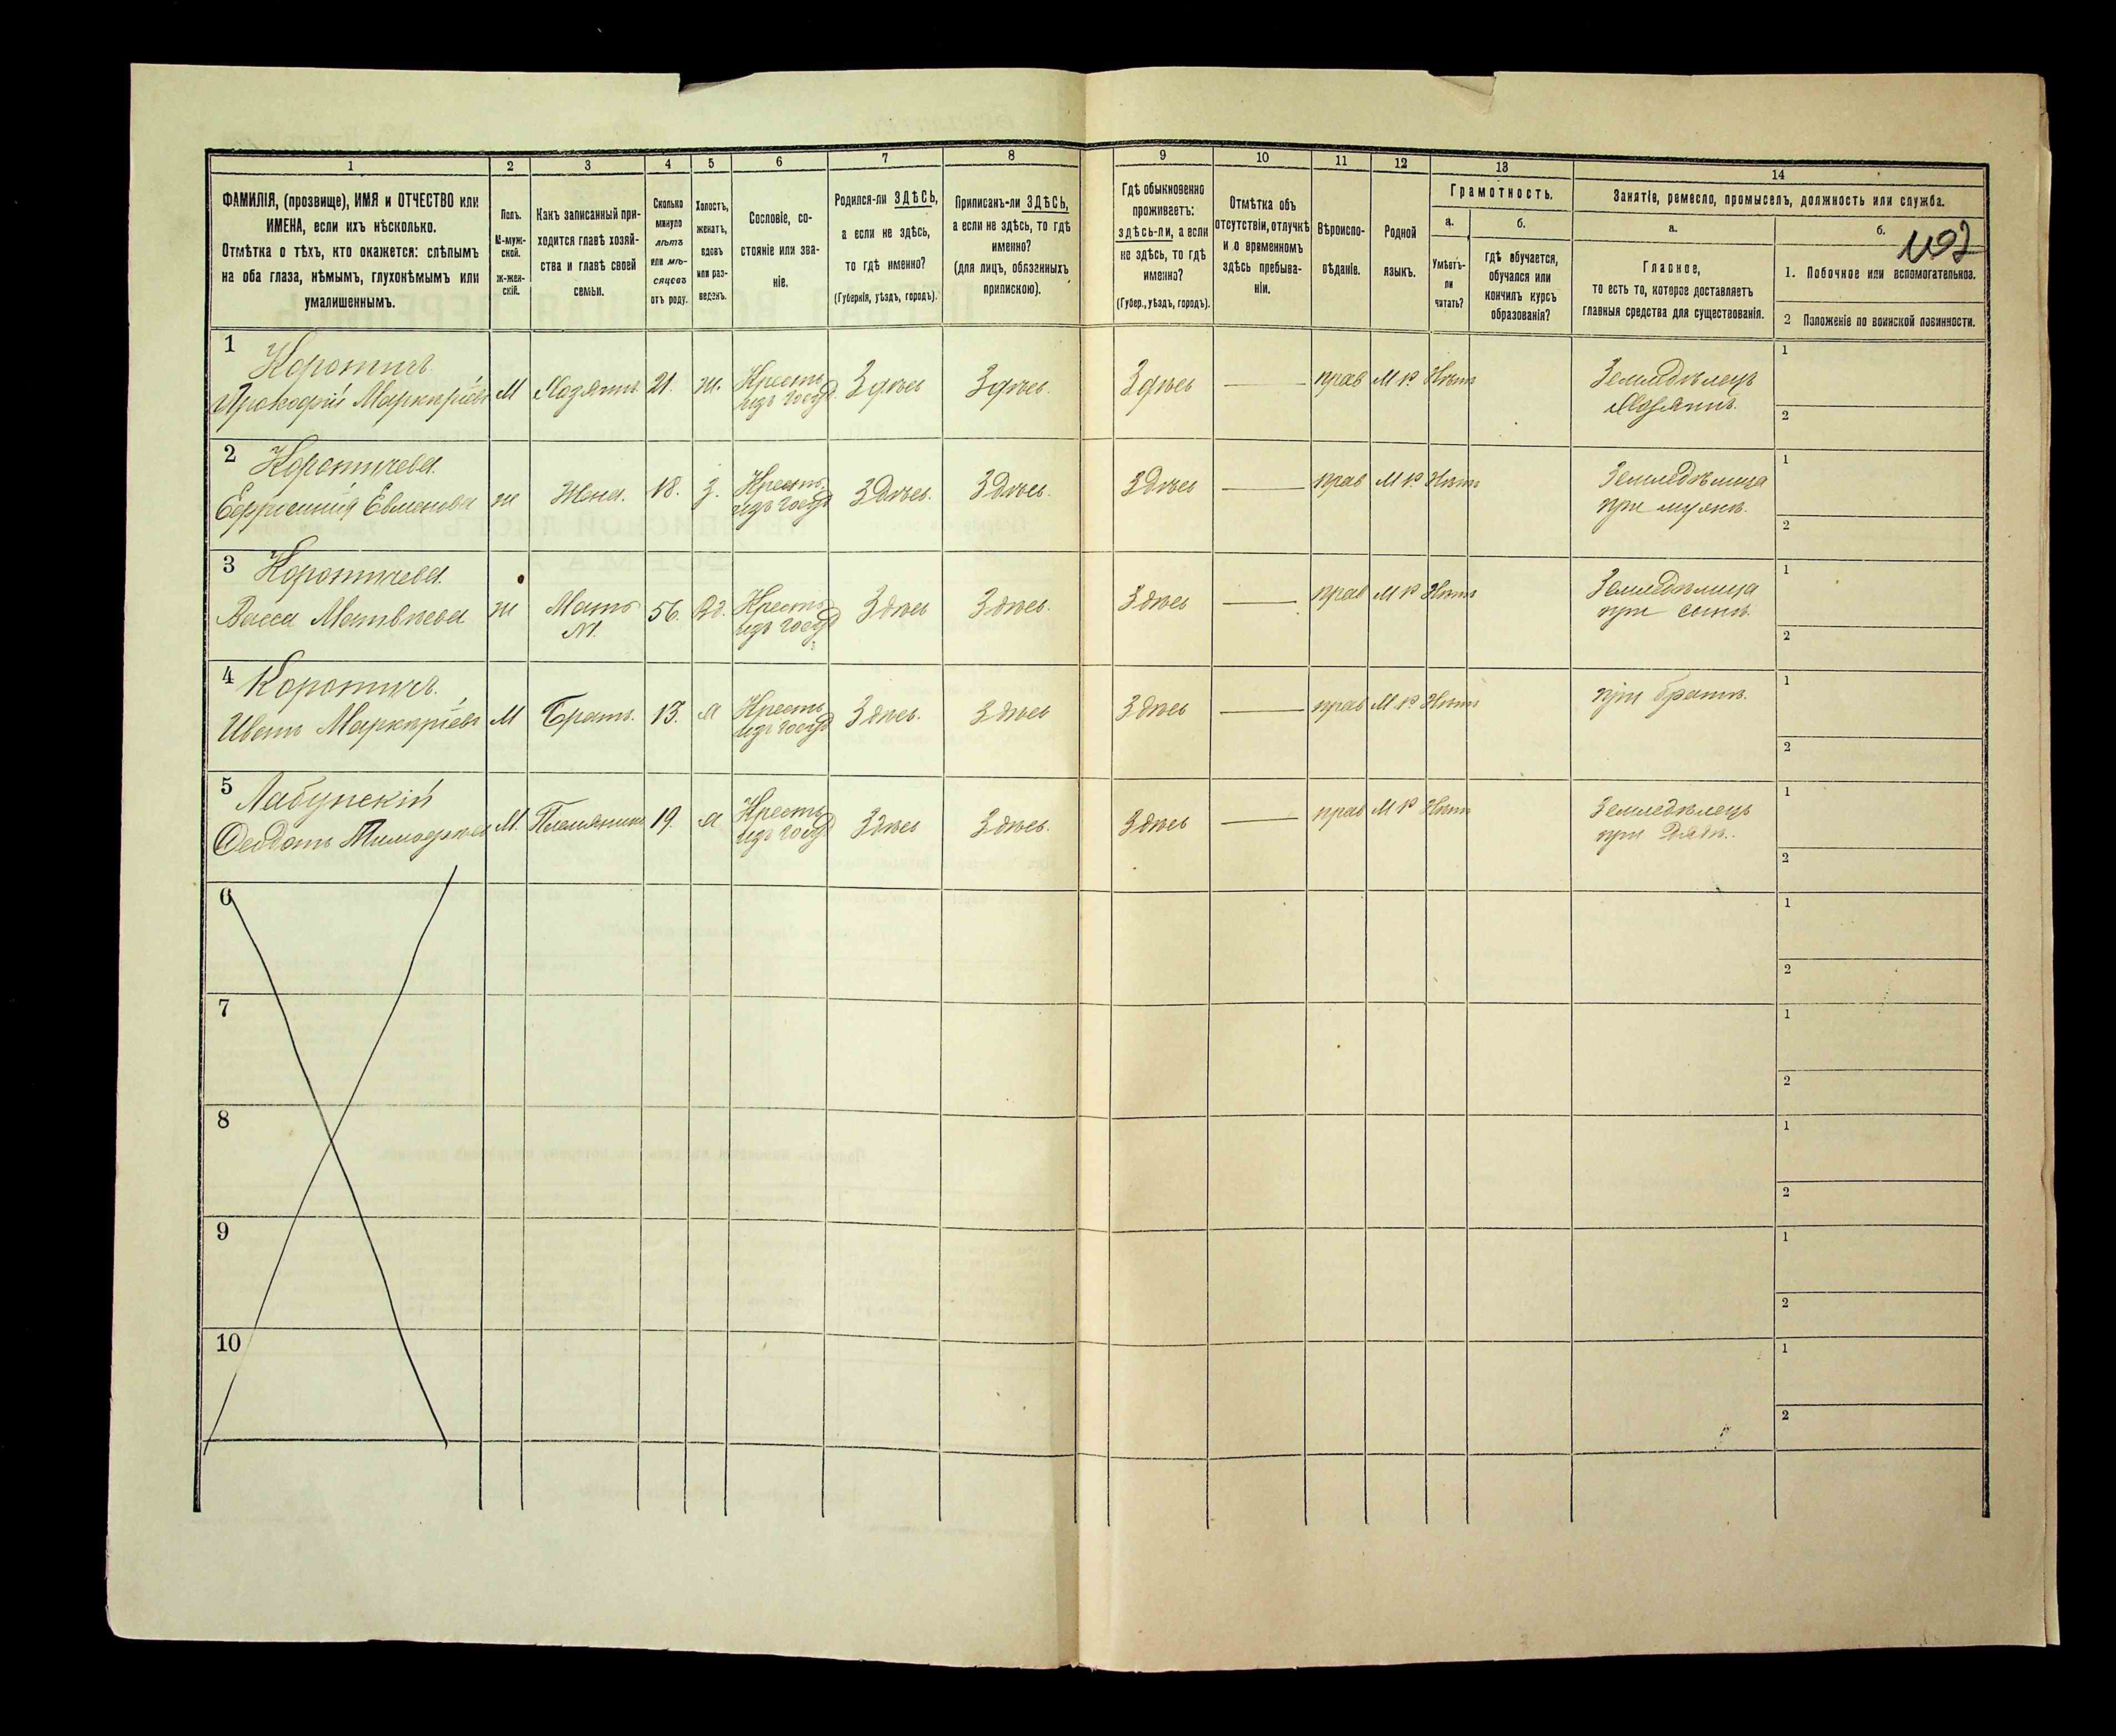 1
2
3
4
5
6
7
8
9
10
11
12
13
14
ФАМИЛІЯ, (прозвище), ИМЯ и ОТЧЕСТВО или
ИМЕНА, если ихъ нѣсколько.
Отмѣтка о тѣхъ, кто окажется: слѣпымъ
на оба глаза, нѣмымъ, глухонѣмымъ или
умалишеннымъ.
Полъ.
М-муж-
ской.
ж-жен-
скій.
Какъ записанный при-
ходится главѣ хозяй-
ства и главѣ своей
семьи.
Сколько
минуло
лѣтъ
или мѣ-
сяцевъ
отъ роду.
Холостъ,
женатъ,
вдовъ
или раз-
веденъ.
Сословіе, со-
стояніе или зва-
ніе.
Родился-ли ЗДѢСЬ,
а если не здѣсь,
то гдѣ именно?
(Губернія, уѣздъ, городъ).
Приписанъ-ли ЗДѢСЬ,
а если не здѣсь, то гдѣ
именно?
(для лицъ, обязанныхъ
припискою).
Гдѣ обыкновенно
проживаетъ:
здѣсь-ли, а если
не здѣсь, то гдѣ
именно?
(Губер., уѣздъ, городъ).
Отмѣтка объ
отсутствіи, отлучкѣ
и о временномъ
здѣсь пребыва-
ніи.
Вѣроиспо-
вѣданіе.
Родной
языкъ.
Грамотность.
а.
Умѣетъ-
ли
читать?
б.
гдѣ обучается,
обучался или
кончилъ курсъ
образованія?
Занятіе, ремесло, промыселъ, должность или служба.
а.
Главное,
то есть то, которое доставляетъ
главныя средства для существованія.
б.
1. Побочное или вспомогательное.
2 Положеніе по воинской повинности.
1
Коротичъ
Прокофій Маркиріевъ
М
Хозяинъ
21.
ж.
Крестъ
изъ госуд
Здѣсь
Здѣсь.
Здѣсь
прав
М р
Нѣтъ
Земледѣлецъ
Хозяинъ.
1
2
2
Коротичева
ж
Жена.
18.
З.
Крестъ.
изъ госуд
Здѣсь.
Здѣсь.
Здѣсь
прав
М р
Нѣтъ
Земледѣлица
при мужѣ.
1
2
3
Коротичева
Васса Матвѣева
ж
Мать
№1.
56.
Вд.
Крестъ
изъ госуд
Здѣсь
Здѣсь.
Здѣсь
прав
М р
Нѣтъ
Земледѣлица
при сынѣ.
1
2
4
Коротичъ.
Иванъ Маркиріевъ
М
Братъ.
13.
х
Крестъ
изъ госуд
Здѣсь.
Здѣсь
Здѣсь
прав
М р
Нѣтъ
при братѣ.
1
2
5
Лабунскій
Федотъ
М.
Племянникъ
19.
х
Крестъ
изъ госуд
Здѣсь
Здѣсь.
Здѣсь
прав
М р
Нѣтъ
Земледѣлецъ
при дядѣ.
1
2
6
1
2
7
1
2
8
1
2
9
1
2
10
1
2